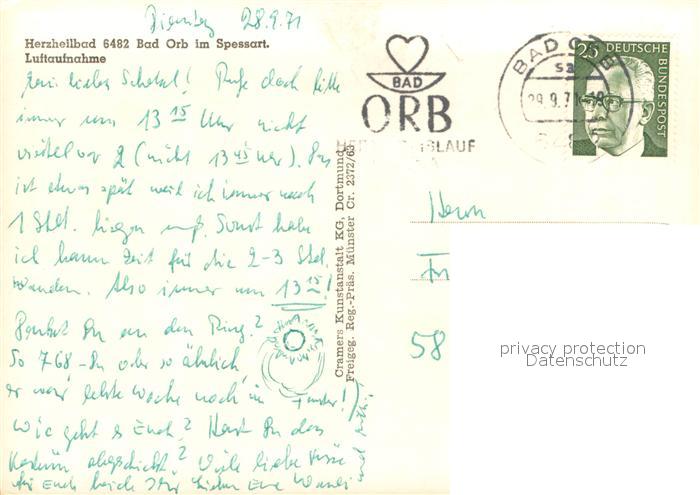 Dienstag 28.9.71
Herzheilbad 6482 Bad Orb im Spessart.
Luftaufnahme
mein lieber Schatzl! Rufe doch bitte
immer um 13 15 Uhr nicht
viertel vor 2 (nicht 13 45 Uhr). Das
ist etwas spät weil ich immer noch
1 Std. liegen muß. Sonst habe
ich kaum Zeit für die 2-3 Std.
Wandern. Also immer um 13 15!
Denkst Du an den Ring?
So 768,-Dm oder so ähnlich,
er war letzte Woche noch im Fenster!
Wie geht es Euch? Hast Du das
Kostüm abgeschickt? Viele liebe Küsse
für Euch beide
Cramers Kunstanstalt KG, Dortmund
Freigeg. Reg.-Präs. Münster Cr. 2372/63
BAD
ORB
LAUF
BAD ORB
29.9.71
25 DEUTSCHE
BUNDESPOST
Herrn
58
privacy protection
Datenschutz